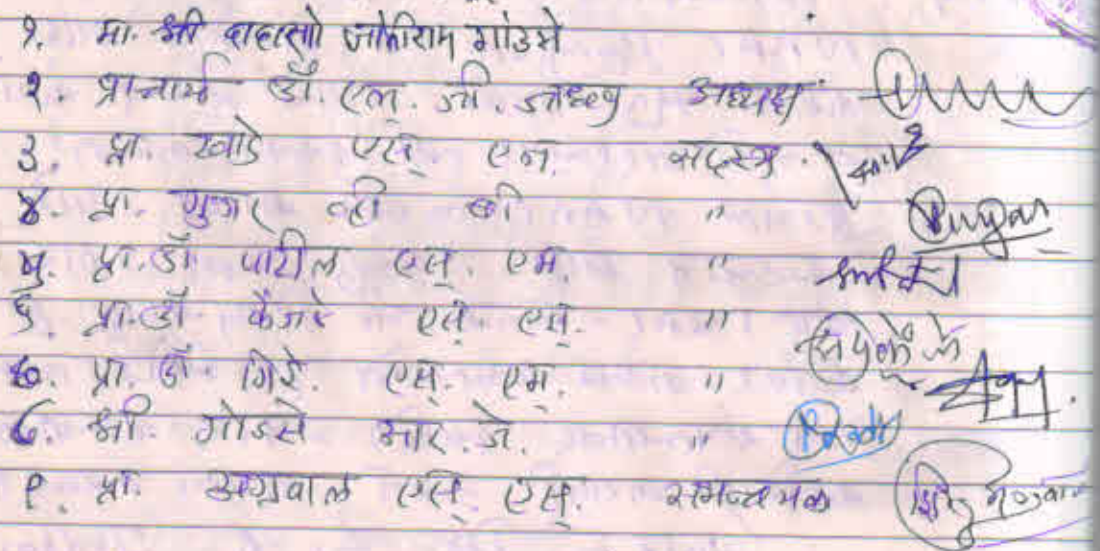 १. मा. श्री दादासो जोतिराम गोडसे
२. प्राचार्य डॉ. एल. जी. जाधव अध्यक्ष
३. प्रा. खाडे एस् एन. सदस्य.
४. प्रा. गुजर व्ही बी " Pujar
५. प्रा. डॉ पाटील एस्. एम. "
६ प्रा. डॉ केंजळे एस्. एस्. "
७. प्रा. डॉ गिरी. एस्. एम. "
८. श्री. गोडसे आर. जे. "
९. प्रा. अग्रवाल एस् एस्. समन्वयक